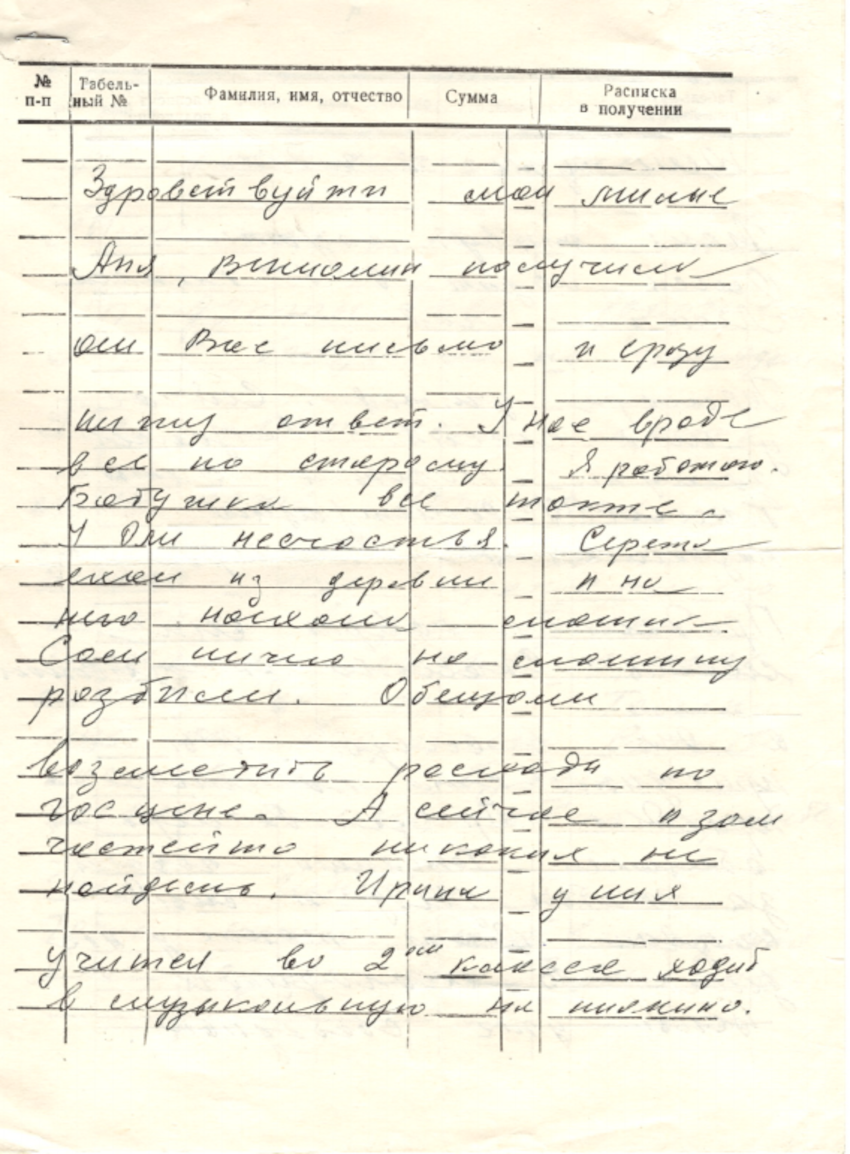 № п-п Табель-ный № Фамилия, имя, отчество Сумма Расписка в получении
Здравствуйти мои милые
Аня, Вениамин получила
от Вас письмо и сразу
пишу ответ. У нас вроде
все по старому. Я работаю.
Бабушка все также.
У Оли несчастья. Сережа
ехал из деревни и на
него наехала машина
Сам ничего но машину
разбили. Обещали
возместить расходы по
гос цене. А сейчас и зап
частейто никаких не
найдешь. Ирина у них
учится во 2ом классе ходит
в музыкальную на пианино.